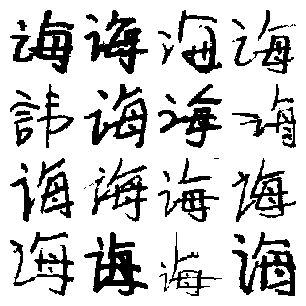 诲诲诲诲
诲诲诲
诲诲诲诲
诲诲诲诲